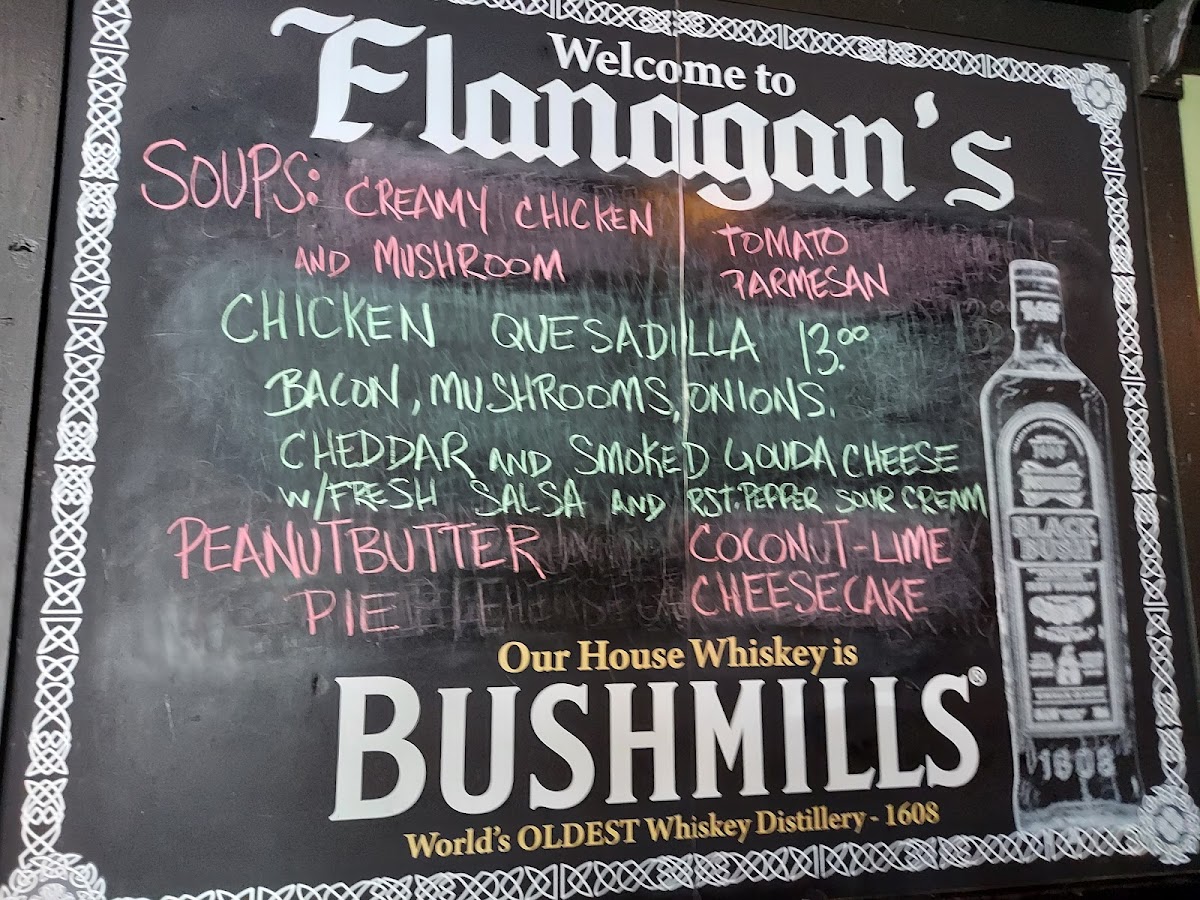 Welcome to
Flanagan's
SOUPS: CREAMY CHICKEN
AND MUSHROOM
TOMATO
PARMESAN
CHICKEN QUESADILLA 13.00
BACON, MUSHROOMS, ONIONS.
CHEDDAR AND SMOKED GOUDA CHEESE
W/FRESH SALSA AND RST. PEPPER SOUR CREAM
PEANUTBUTTER
PIE
COCONUT-LIME
CHEESECAKE
Our House Whiskey is
BUSHMILLS®
World's OLDEST Whiskey Distillery - 1608
BLACK
BUSH
1608